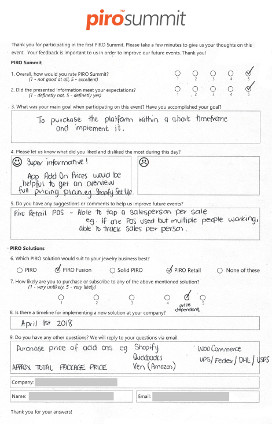 piro summit
Thank you for participating in the first PIRO Summit. Please take a few minutes to give us your thoughts on this
event. Your feedback is important to us in order to improve our future events. Thank you!
PIRO Summit
1. Overall, how would you rate PIRO Summit?
(1 - not good at all, 5 - excellent)
2. Did the presented information meet your expectations?
(1 - definitely not, 5 - definitely yes)
3. What was your main goal when participating on this event? Have you accomplished your goal?
To purchase the platform within a short timeframe
and implement it.
4. Please let us know what did you liked and disliked the most during this day?
Super informative!
App Add On Prices would be
helpful to get an overview
full pricing plan eg Shopify Set Up
5. Do you have any suggestions or comments to help us improve future events?
Piro Retail POS - Able to tap a salesperson per sale
eg. If one POS used but multiple people working,
able to track sales per person.
PIRO Solutions
6. Which PIRO solution would suit to your jewelry business best?
PIRO
PIRO Fusion
Solid PIRO
PIRO Retail
None of these
7. How likely are you to purchase or subscribe to any of the above mentioned solution?
(1 - very unlikely, 5 - very likely)
price
dependent
8. Is there a timeline for implementing a new solution at your company?
April 1st 2018
9. Do you have any other questions? We will reply to your questions via email
Purchase price of add ons eg Shopify
Woo Commerce
Quickbooks
UPS/Fedex/DHL/USPS
APPROX TOTAL PACKAGE PRICE
(Amazon)
Company:
Name:
Email:
Thank you for your answers!